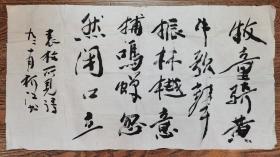 牧童骑黄
牛歌声
振林樾意
捕鸣蝉忽
然闭口立
袁枚所见诗